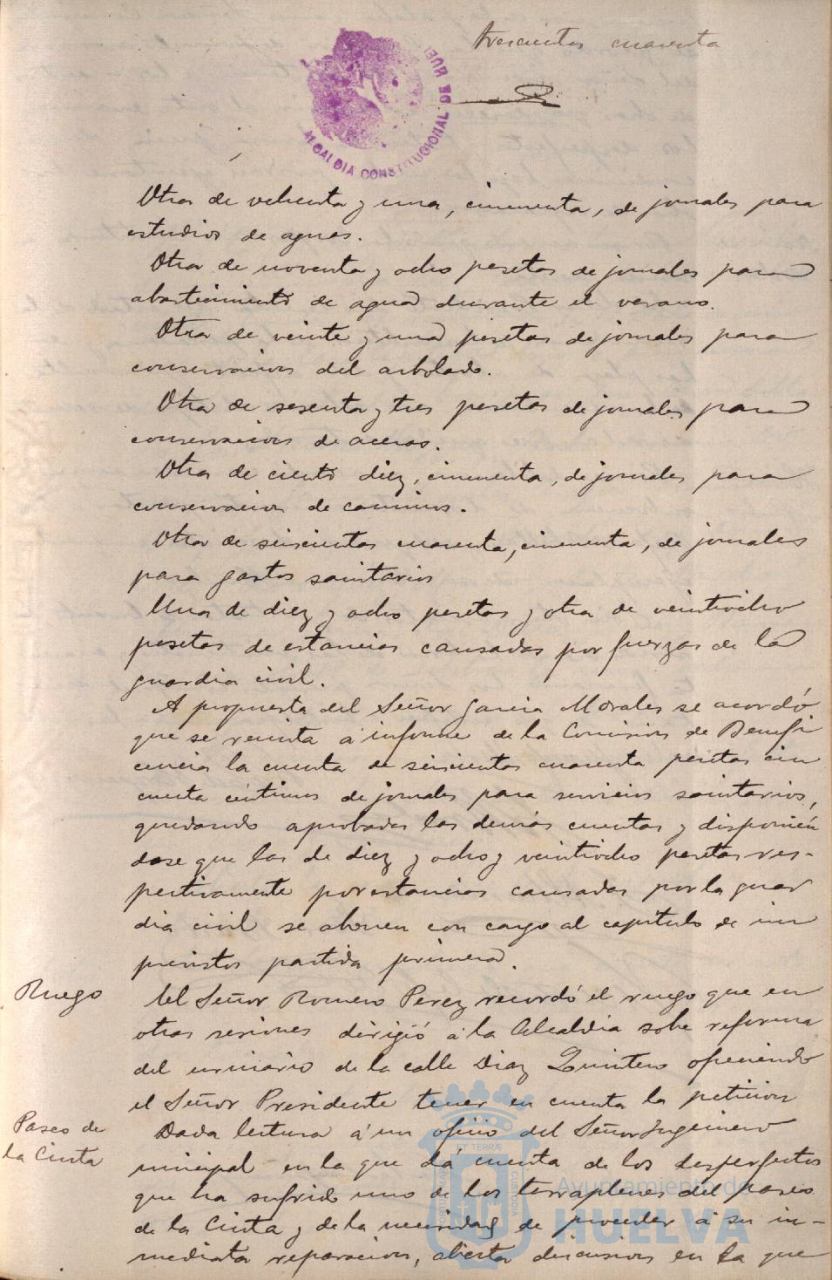 trescientos cuarenta
ALCALDIA CONSTITUCIONAL DE HUEL
Otra de ochenta y una, cincuenta, de jornales para
estudios de aguas.
Otra de noventa y ocho pesetas de jornales para
abastecimiento de agua durante el verano.
Otra de veinte y una pesetas de jornales para
conservacion del arbolado.
Otra de sesenta y tres pesetas de jornales para
conservacion de aceras.
Otra de ciento diez, cincuenta, de jornales para
conservacion de caminos.
Otra de seiscientas cuarenta, cincuenta, de jornales
para gastos sanitarios
Una de diez y ocho pesetas y otra de veintiocho
pesetas de estancias causadas por fuerzas de la
guardia civil.
A propuesta del Señor Garcia Morales se acordó
que se remita á informe de la Comision de Benefi
cencia la cuenta de seiscientas cuarenta pesetas cin
cuenta céntimos de jornales para servicios sanitarios,
quedando aprobadas las demás cuentas y disponién
dose que las de diez y ocho y veintiocho pesetas res-
pectivamente por estancias causadas por la guar
dia civil se abonen con cargo al capitulo de im
previstos partida primera.
Ruego
El Señor Romero Perez recordó el ruego que en
otras sesiones dirigió á la Alcaldia sobe reforma
del urinario de la calle Diaz Quintero ofreciendo
el Señor Presidente tener en cuenta la peticion
Paseo de
la Cinta
Dada lectura á un oficio del Señor Ingeniero
municipal en la que dá cuenta de los desperfectos
que ha sufrido uno de los terraplenes del paseo
de la Cinta y de la necesidad de proceder á su in-
mediata reparacion, abierta discusion en la que
Ayuntamiento de
HUELVA